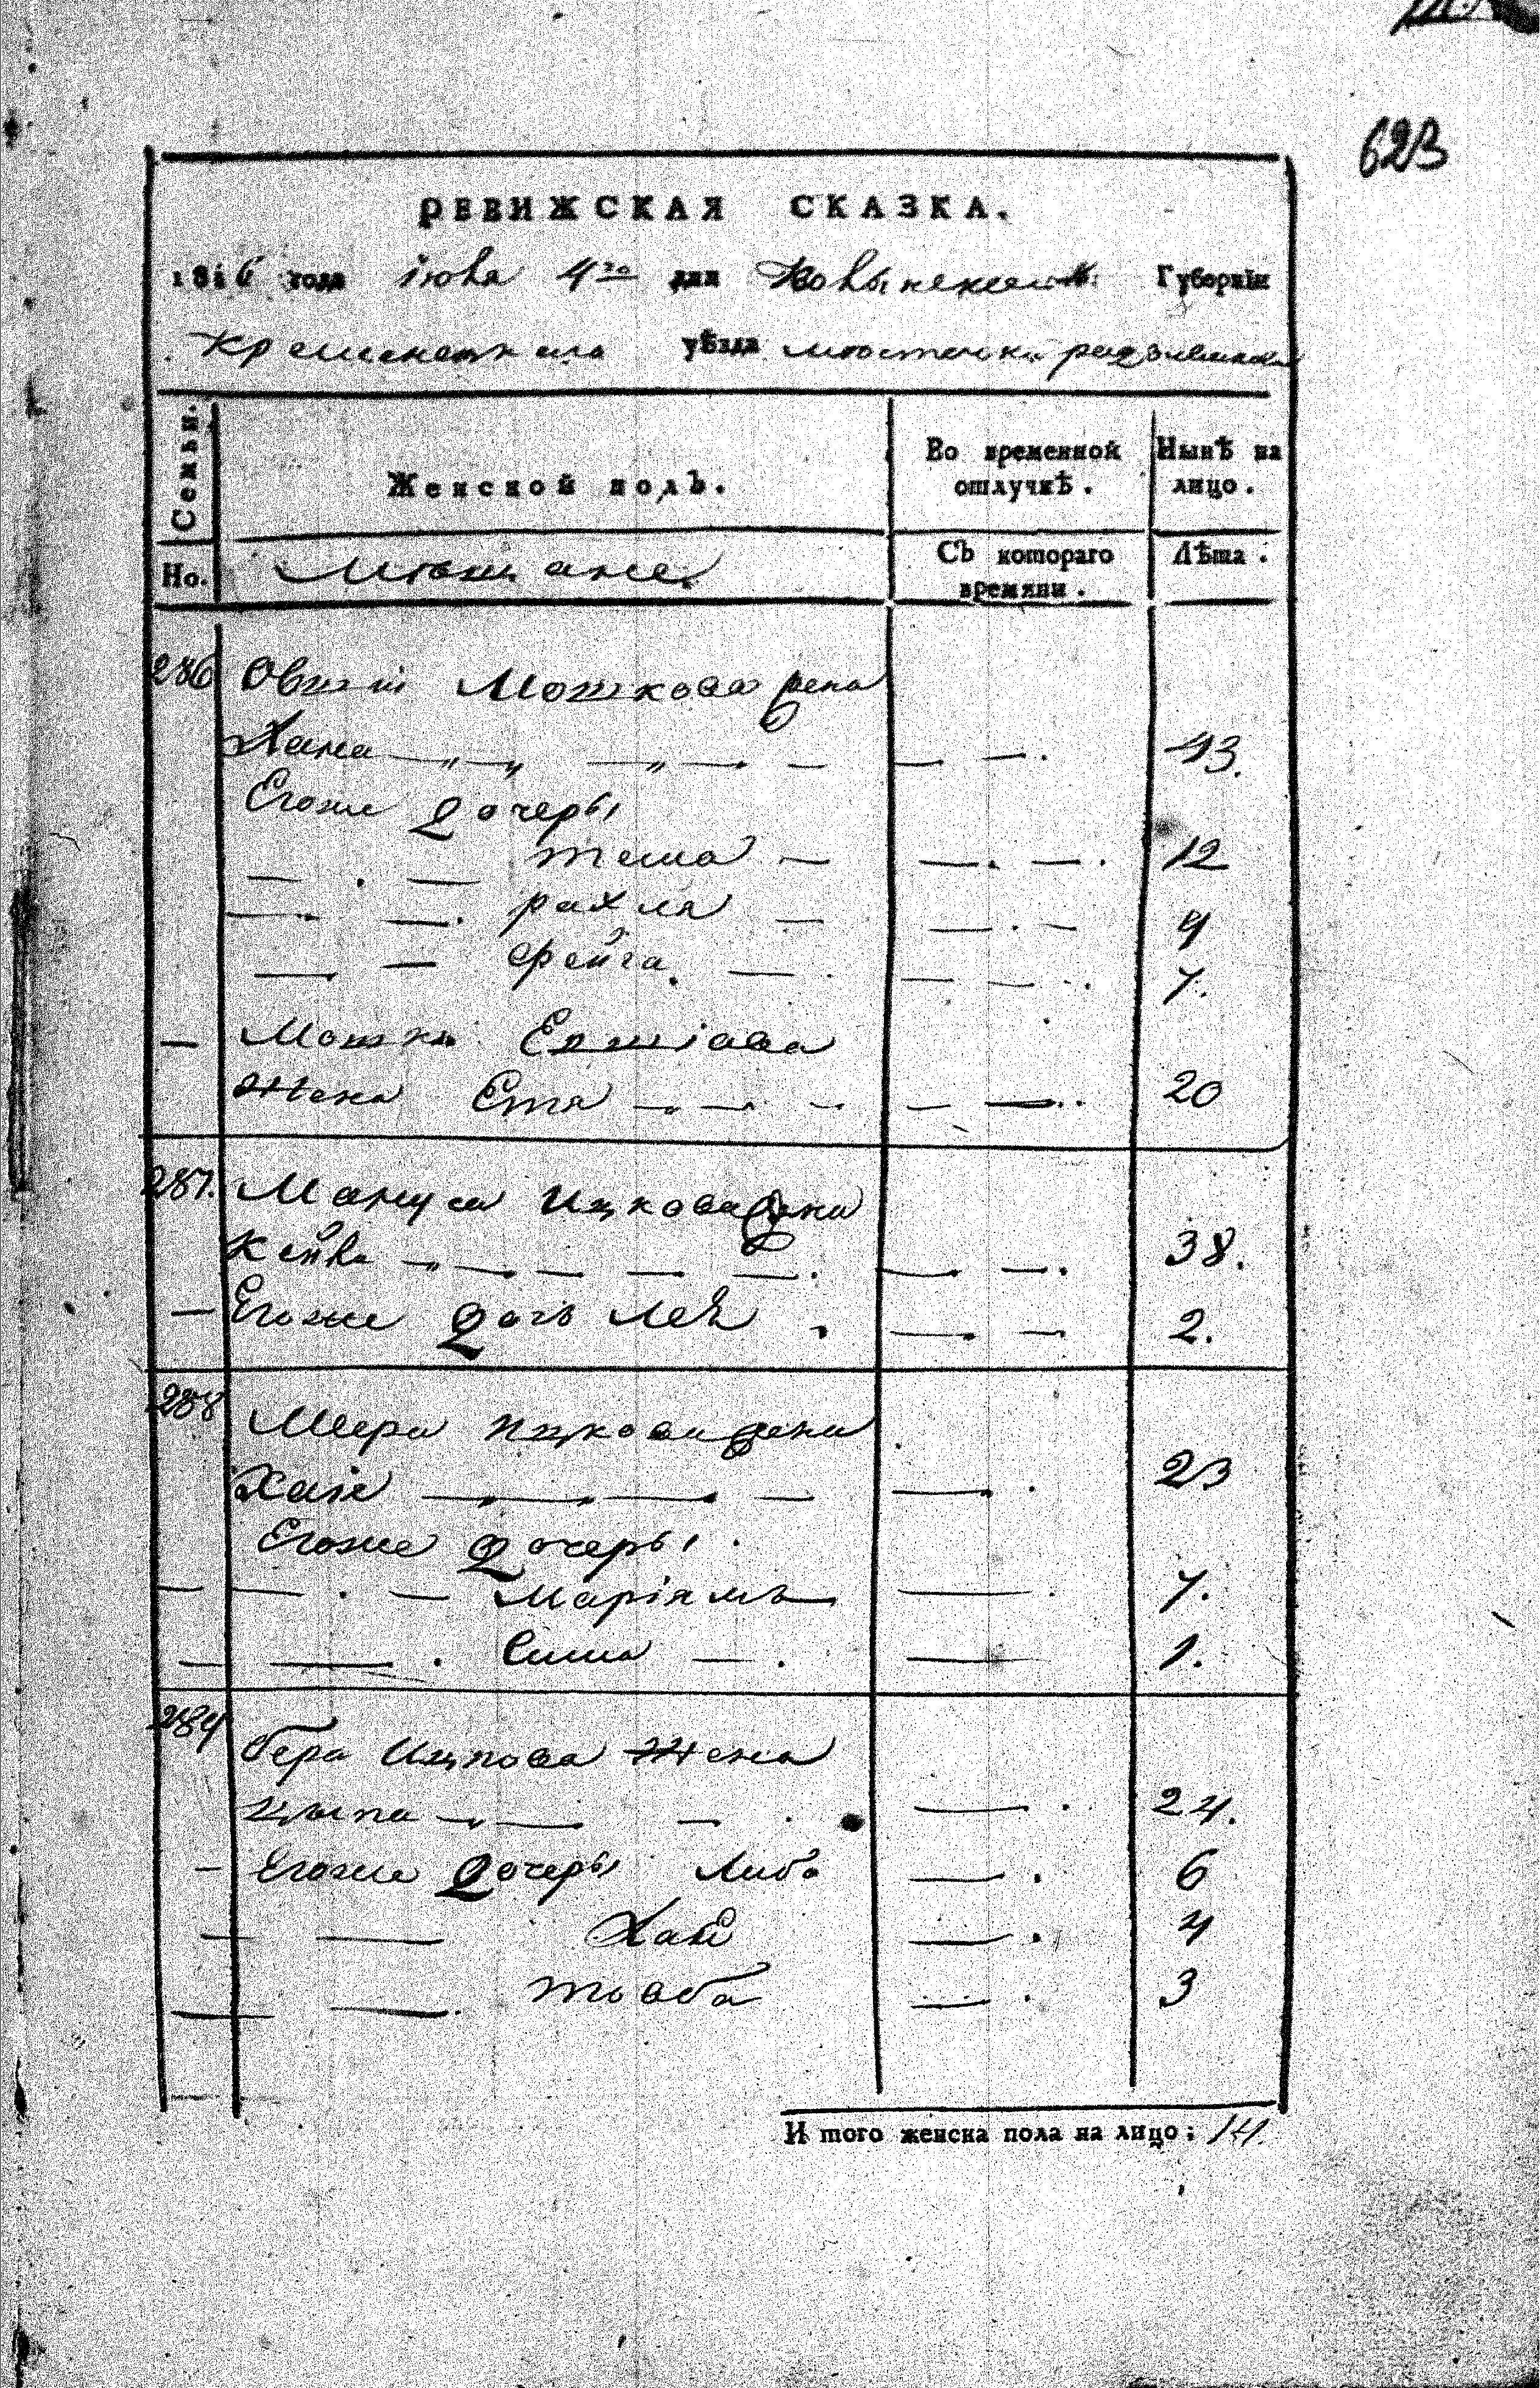 623
РЕВИЖСКАЯ СКАЗКА.
1816 года июня 4го дня Волынской Губернiи
Кременецкаго уѣзда местечка радзивилова
Семьи.
Женской полъ.
Во временной отлучкѣ.
Нынѣ на лицо.
Но.
Мещане
Съ котораго времяни.
Лѣта.
286 Овшии Мошкова жена
Хана 43.
Егоже дочеры
тема 12
рахля 9
фейга 7.
Мошка Евшiова
жена Етя 20
287. Мануса Ицкова жена
Кейла 38.
Егоже дочь Лея 2.
288 Меера Ицкова жена
Хая 23
Егоже дочеры
Марiямъ 7.
Сима 1.
289 бера Ицкова жена
Цыпа 24.
Егоже дочеры Либа 6
Хая 4
товба 3
И того женска пола на лицо; 14.